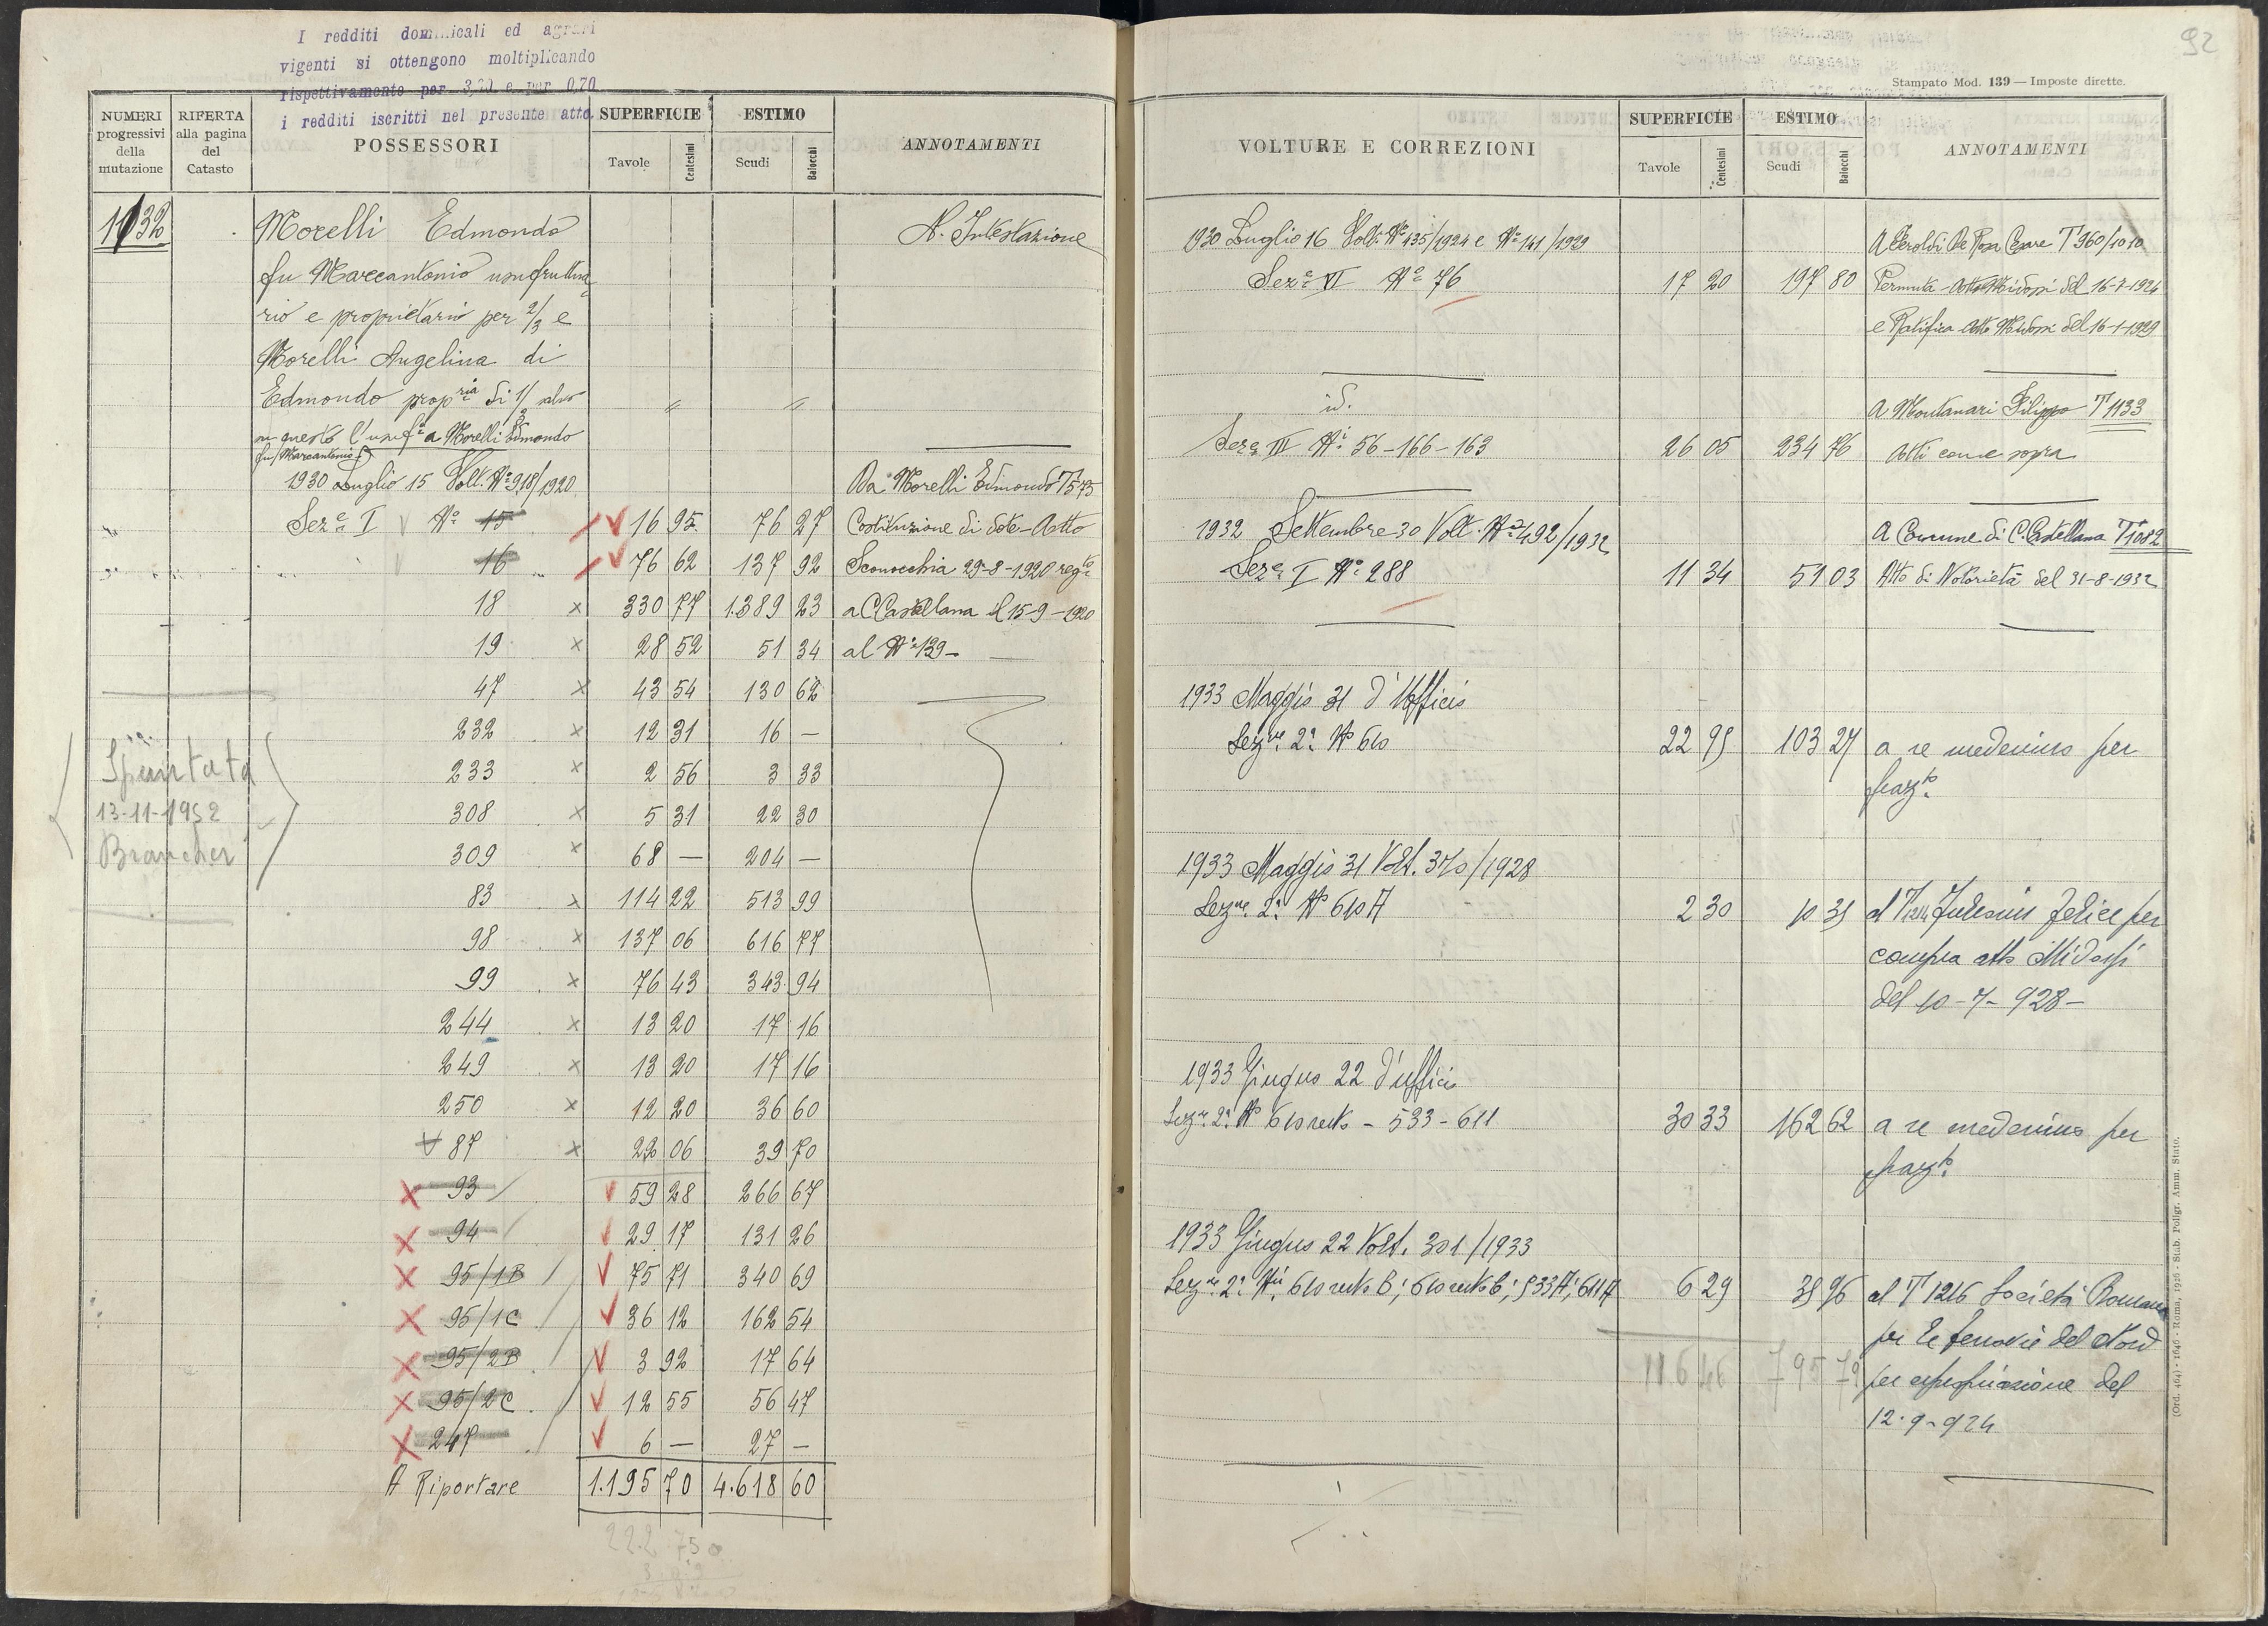 I redditi dominicali ed agrari
vigenti si ottengono moltiplicando
rispettivamente per 3,20 e per 0,70
i redditi iscritti nel presente atto
NUMERI progressivi della mutazione
RIFERTA alla pagina del Catasto
POSSESSORI
SUPERFICIE Tavole Centesimi
ESTIMO Scudi Baiocchi
ANNOTAMENTI
1132 Morelli Edmondo N. Intestazione
fu Marcantonio usufruttua
rio e proprietario per 2/3 e
Morelli Angelina di
Edmondo propria di 1/3 salvo " "
su questo l'usuf° a Morelli Edmondo
fu Marcantonio
1930 Luglio 15 Volt. N° 918/1920 Da Morelli Edmondo T 575
Seze I N° 15 16 95 76 27 Costituzione di dote - Atto
16 76 62 137 92 Sconocchia 29-8-1920 regto
18 x 330 77 1.389 23 a C. Castellana il 15-9-1920
19 x 28 52 51 34 al N° 139 -
47 x 43 54 130 62
232 x 12 31 16 —
233 x 2 56 3 33
308 x 5 31 22 30
309 x 68 — 204 —
83 x 114 22 513 99
98 x 137 06 616 77
99 x 76 43 343 94
244 x 13 20 17 16
249 x 13 20 17 16
250 x 12 20 36 60
87 x 22 06 39 70
93 59 28 266 67
94 29 17 131 26
95/1B 75 71 340 69
95/1C 36 12 162 54
95/2B 3 92 17 64
95/2C 12 55 56 47
247 6 — 27 —
A Riportare 1.195 70 4.618 60
Spuntata
13-11-1952
Brancher
92
Stampato Mod. 139 — Imposte dirette.
VOLTURE E CORREZIONI
SUPERFICIE Tavole Centesimi
ESTIMO Scudi Baiocchi
ANNOTAMENTI
1930 Luglio 16 Volt. N° 435/1924 e N° 141/1929 A De Rosa Cesare T 960/1010
Seze VI N° 76 17 20 197 80 Permuta - Atto Midossi del 16-7-1924
e Ratifica Atto Midossi del 16-1-1929
id. A Montanari Filippo T 1133
Seze III Ni 56-166-163 26 05 234 76 Atti come sopra
1932 Settembre 30 Volt. N° 492/1932 A Comune di C. Castellana T 1082
Seze I N° 288 11 34 51 03 Atto di Notorietà del 31-8-1932
1933 Maggio 31 d'Ufficio
Sezne 2a N° 610 22 95 103 27 a se medesimo per
fraz°.
1933 Maggio 31 Volt. 370/1928
Sezne 2a N° 610 A 2 30 10 35 al T Felice per
compra atto Midossi
del 10-7-928 -
1933 Giugno 22 d'ufficio
Sezne 2a N° 610 resto - 533 - 611 30 33 162 62 a se medesimo per
fraz°.
1933 Giugno 22 Volt. 301/1933
Sezne 2a Ni 610 resto B; 610 resto B; 533 A; 611 A 6 29 35 96 al T 1216 Società Romana
per le ferrovie del Nord
116 46 795 79 per espropriazione del
12-9-924
(Ord. 464) - 1646 - Roma, 1926 - Stab. Poligr. Amm. Stato.